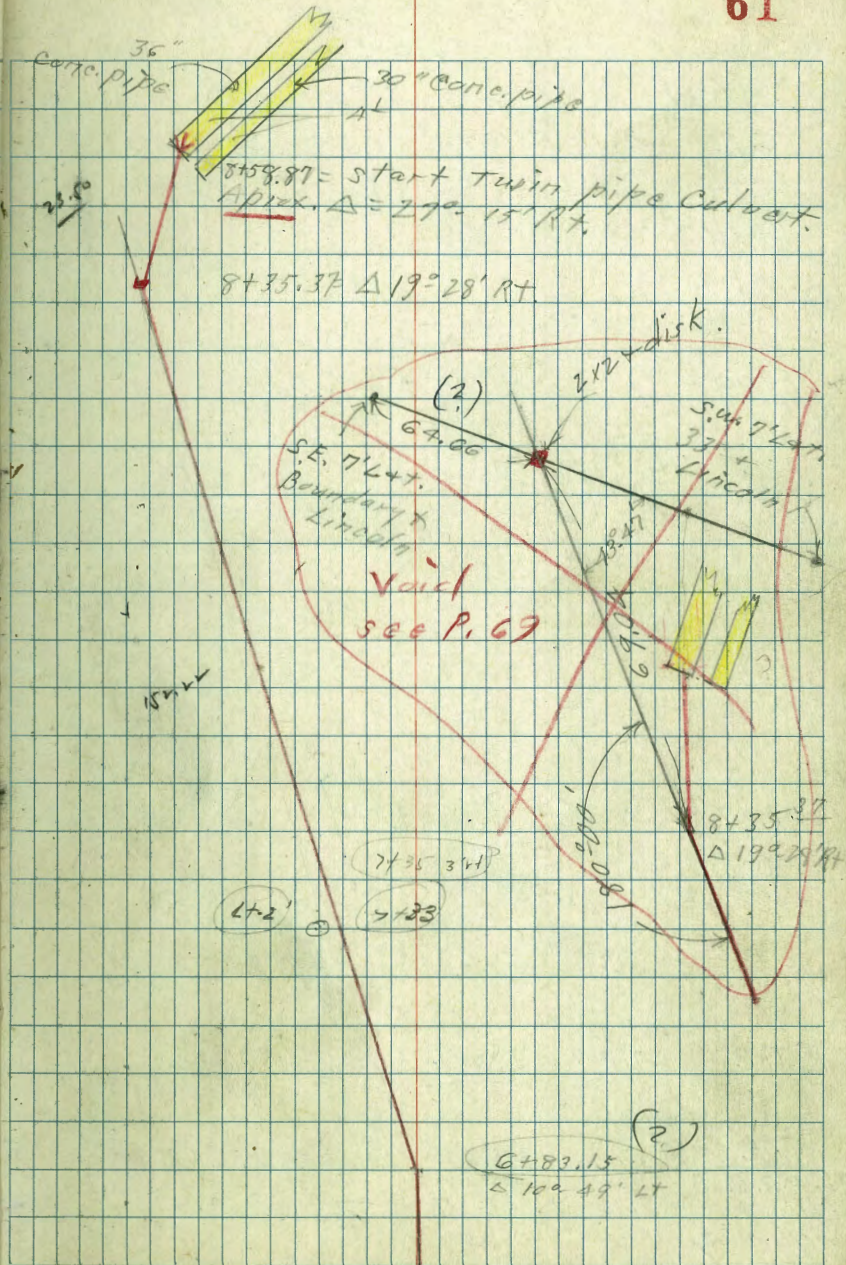 61
36"
Conc. pipe
30" Conc. pipe
4'
8+58.87 = start Twin pipe Culvert.
Aprox. Δ = 27°-15' Rt.
23.50
8+35.37 Δ 19°28' Rt
2x2+disk.
(?)
64.66
S.E. 7' L+t.
Boundary +
Lincoln
S.W. 7' L+t.
33rd +
Lincoln
13°47'
69.04
Void
see P. 69
152.22
180°00'
8+35.37
Δ 19°28' Rt
7+35 3'rt
Lt 2'
7+33
(2)
6+83.15
Δ 10°49' Lt